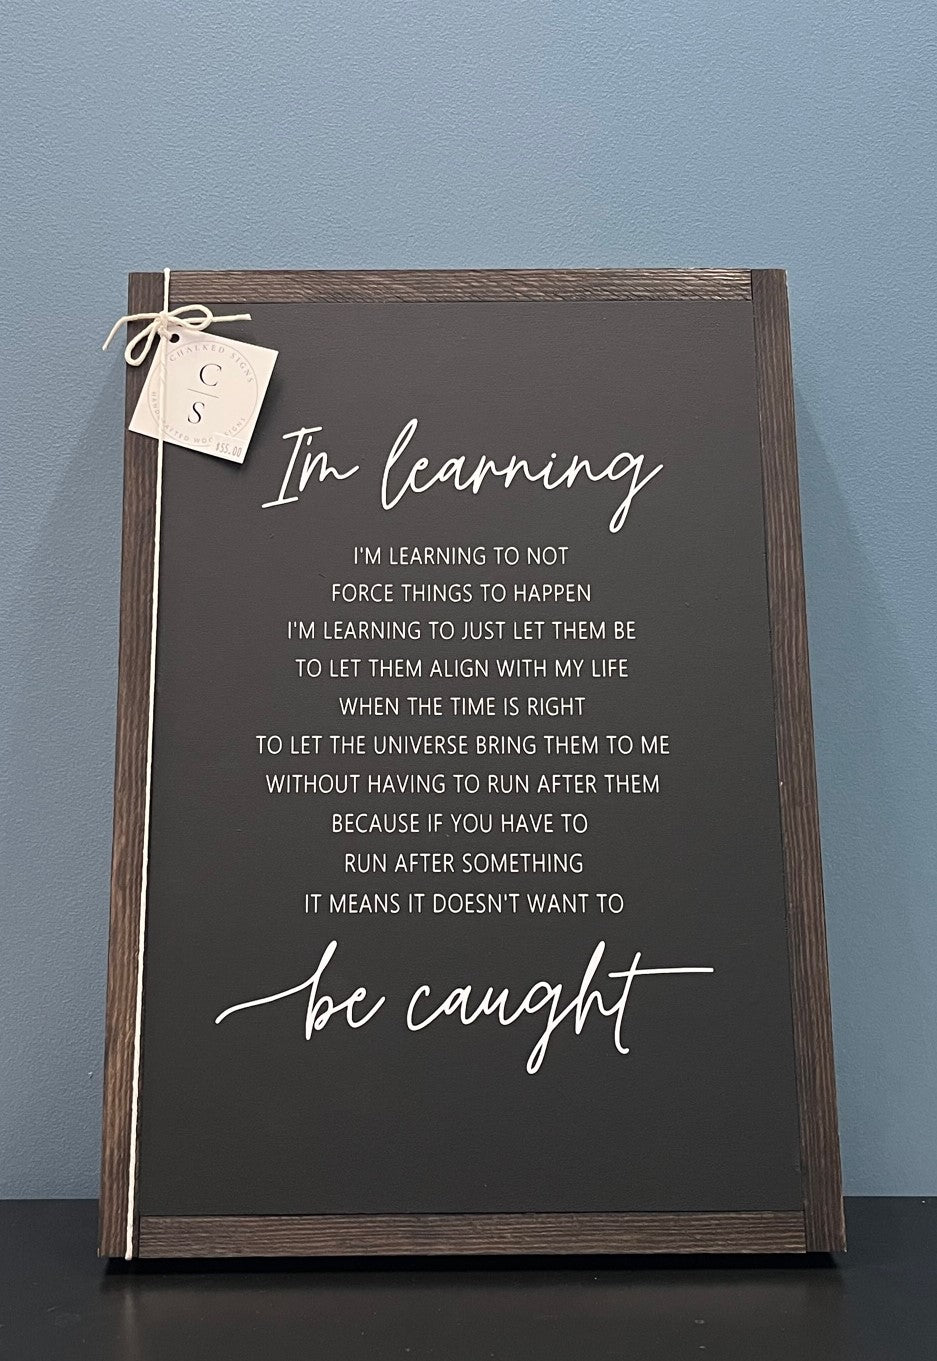 CHALKED SIGNS
C
S
HANDCRAFTED WOOD SIGNS
$55.00
I'm learning
I'M LEARNING TO NOT
FORCE THINGS TO HAPPEN
I'M LEARNING TO JUST LET THEM BE
TO LET THEM ALIGN WITH MY LIFE
WHEN THE TIME IS RIGHT
TO LET THE UNIVERSE BRING THEM TO ME
WITHOUT HAVING TO RUN AFTER THEM
BECAUSE IF YOU HAVE TO
RUN AFTER SOMETHING
IT MEANS IT DOESN'T WANT TO
be caught